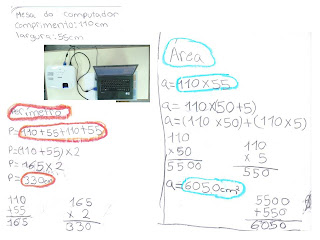 Mesa do computador
comprimento: 110cm
largura: 55cm
Perímetro
P=110+55+110+55
P=(110+55)×2
P= 165×2
P= 330cm
110
+55
165
165
× 2
330
Área
a= 110×55
a= 110×(50+5)
a=(110 ×50)+(110×5)
110
×50
5500
110
× 5
550
a= 6050cm²
5500
+550
6050